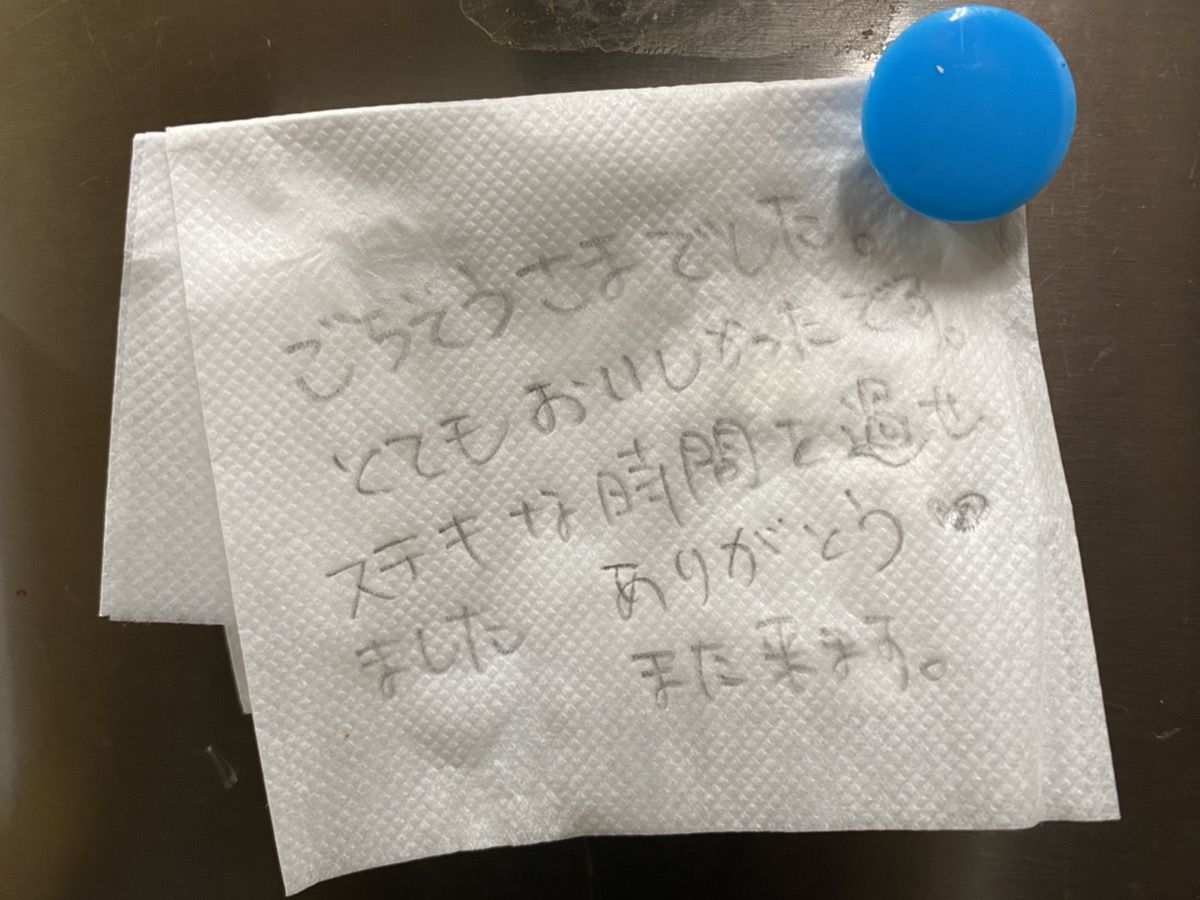 ごちそうさまでした。
とてもおいしかったです。
ステキな時間を過せ
ました
ありがとう♥
また来ます。